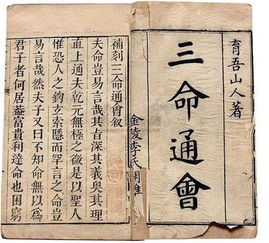 育吾山人著
三命通會
補刻三命通會叙
夫命豈易言哉其旨深其義奥其理
直上通夫乾元無極之後是以聖人
惟恐人之鉤玄索隱而罕言之命豈
易言哉然夫子又曰不知命無以爲
君子者何居葢富貴利達命也困窮